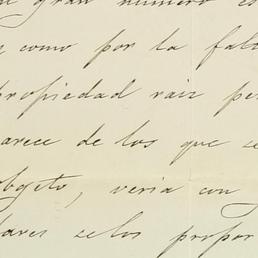 gran numero es
como por la fal
propiedad raiz pe
arece de los que se
obgeto, veria con
tares selos propor